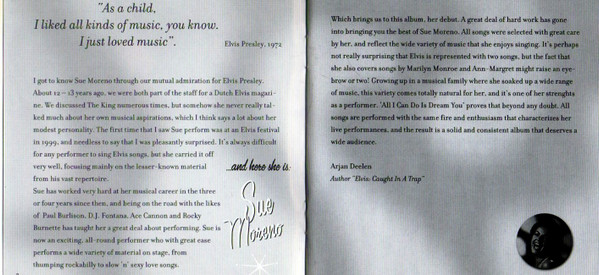 "As a child,
I liked all kinds of music, you know.
I just loved music".
Elvis Presley, 1972
I got to know Sue Moreno through our mutual admiration for Elvis Presley.
About 12 – 13 years ago, we were both part of the staff for a Dutch Elvis magazi-
ne. We discussed The King numerous times, but somehow she never really tal-
ked much about her own musical aspirations, which I think says a lot about her
modest personality. The first time that I saw Sue perform was at an Elvis festival
in 1999, and needless to say that I was pleasantly surprised. It's always difficult
for any performer to sing Elvis songs, but she carried it off
very well, focusing mainly on the lesser-known material
from his vast repertoire.
Sue has worked very hard at her musical career in the three
or four years since then, and being on the road with the likes
of Paul Burlison, D.J. Fontana, Ace Cannon and Rocky
Burnette has taught her a great deal about performing. Sue is
now an exciting, all-round performer who with great ease
performs a wide variety of material on stage, from
thumping rockabilly to slow 'n' sexy love songs.
...and here she is:
Sue
Moreno
Which brings us to this album, her debut. A great deal of hard work has gone
into bringing you the best of Sue Moreno. All songs were selected with great care
by her, and reflect the wide variety of music that she enjoys singing. It's perhaps
not really surprising that Elvis is represented with two songs, but the fact that
she also covers songs by Marilyn Monroe and Ann-Margret might raise an eye-
brow or two! Growing up in a musical family where she soaked up a wide range
of music, this variety comes totally natural for her, and it's one of her strenghts
as a performer. 'All I Can Do Is Dream You' proves that beyond any doubt. All
songs are performed with the same fire and enthusiasm that characterizes her
live performances, and the result is a solid and consistent album that deserves a
wide audience.
Arjan Deelen
Author "Elvis: Caught In A Trap"